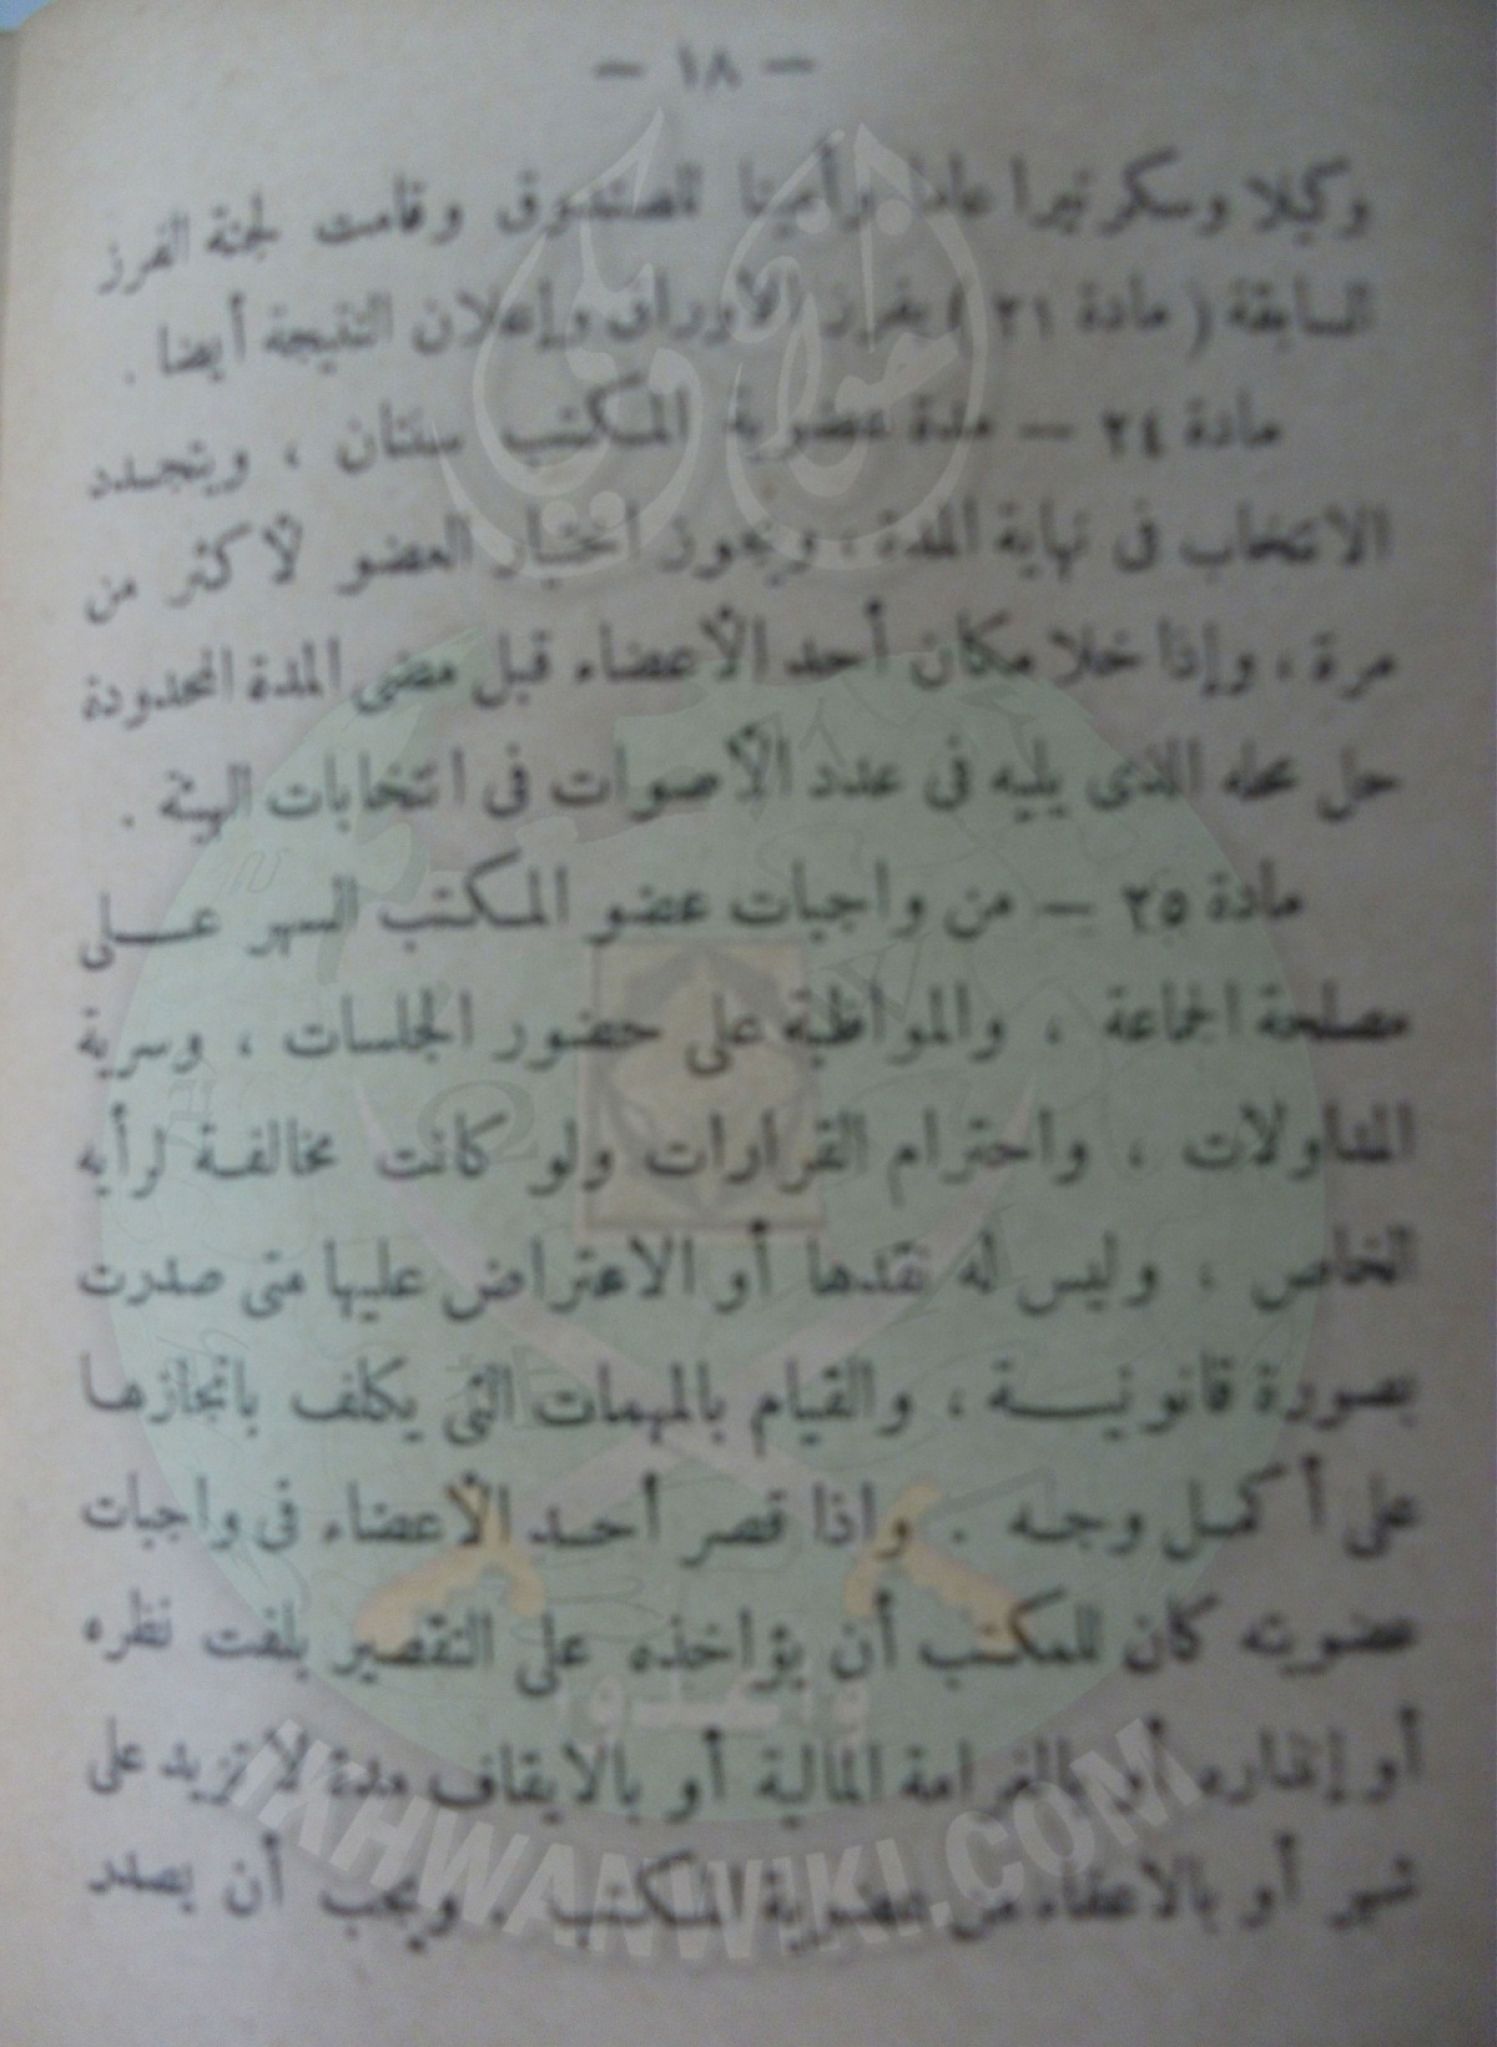 — ١٨ —
وكيلا وسكرتيرا عاما وأمينا للصندوق وقامت لجنة الفرز
السابقة ( مادة ٢١ ) بفرز الأوراق وإعلان النتيجة أيضا .
مادة ٢٤ — مدة عضوية المكتب سنتان ، ويتجدد
الانتخاب فى نهاية المدة ، ويجوز اختيار العضو لأكثر من
مرة ، وإذا خلا مكان أحد الأعضاء قبل مضى المدة المحدودة
حل محله الذى يليه فى عدد الأصوات فى انتخابات الهيئة .
مادة ٢٥ — من واجبات عضو المكتب السهر عـــلى
مصلحة الجماعة ، والمواظبة على حضور الجلسات ، وسرية
المداولات ، واحترام القرارات ولو كانت مخالفة لرأيه
الخاص ، وليس له نقدها أو الاعتراض عليها متى صدرت
بصورة قانونيــــة ، والقيام بالمهمات التى يكلف بانجازها
على أكمـل وجـه . واذا قصر أحـد الأعضاء فى واجبات
عضويته كان للمكتب أن يؤاخذه على التقصير بلفت نظره
أو إنذاره أو بالغرامة المالية أو بالايقاف مدة لا تزيد على
شهر أو بالاعفاء من عضوية المكتب ، ويجب أن يصدر
إخوان ويكي
وأعدوا
IKHWANWIKI.COM